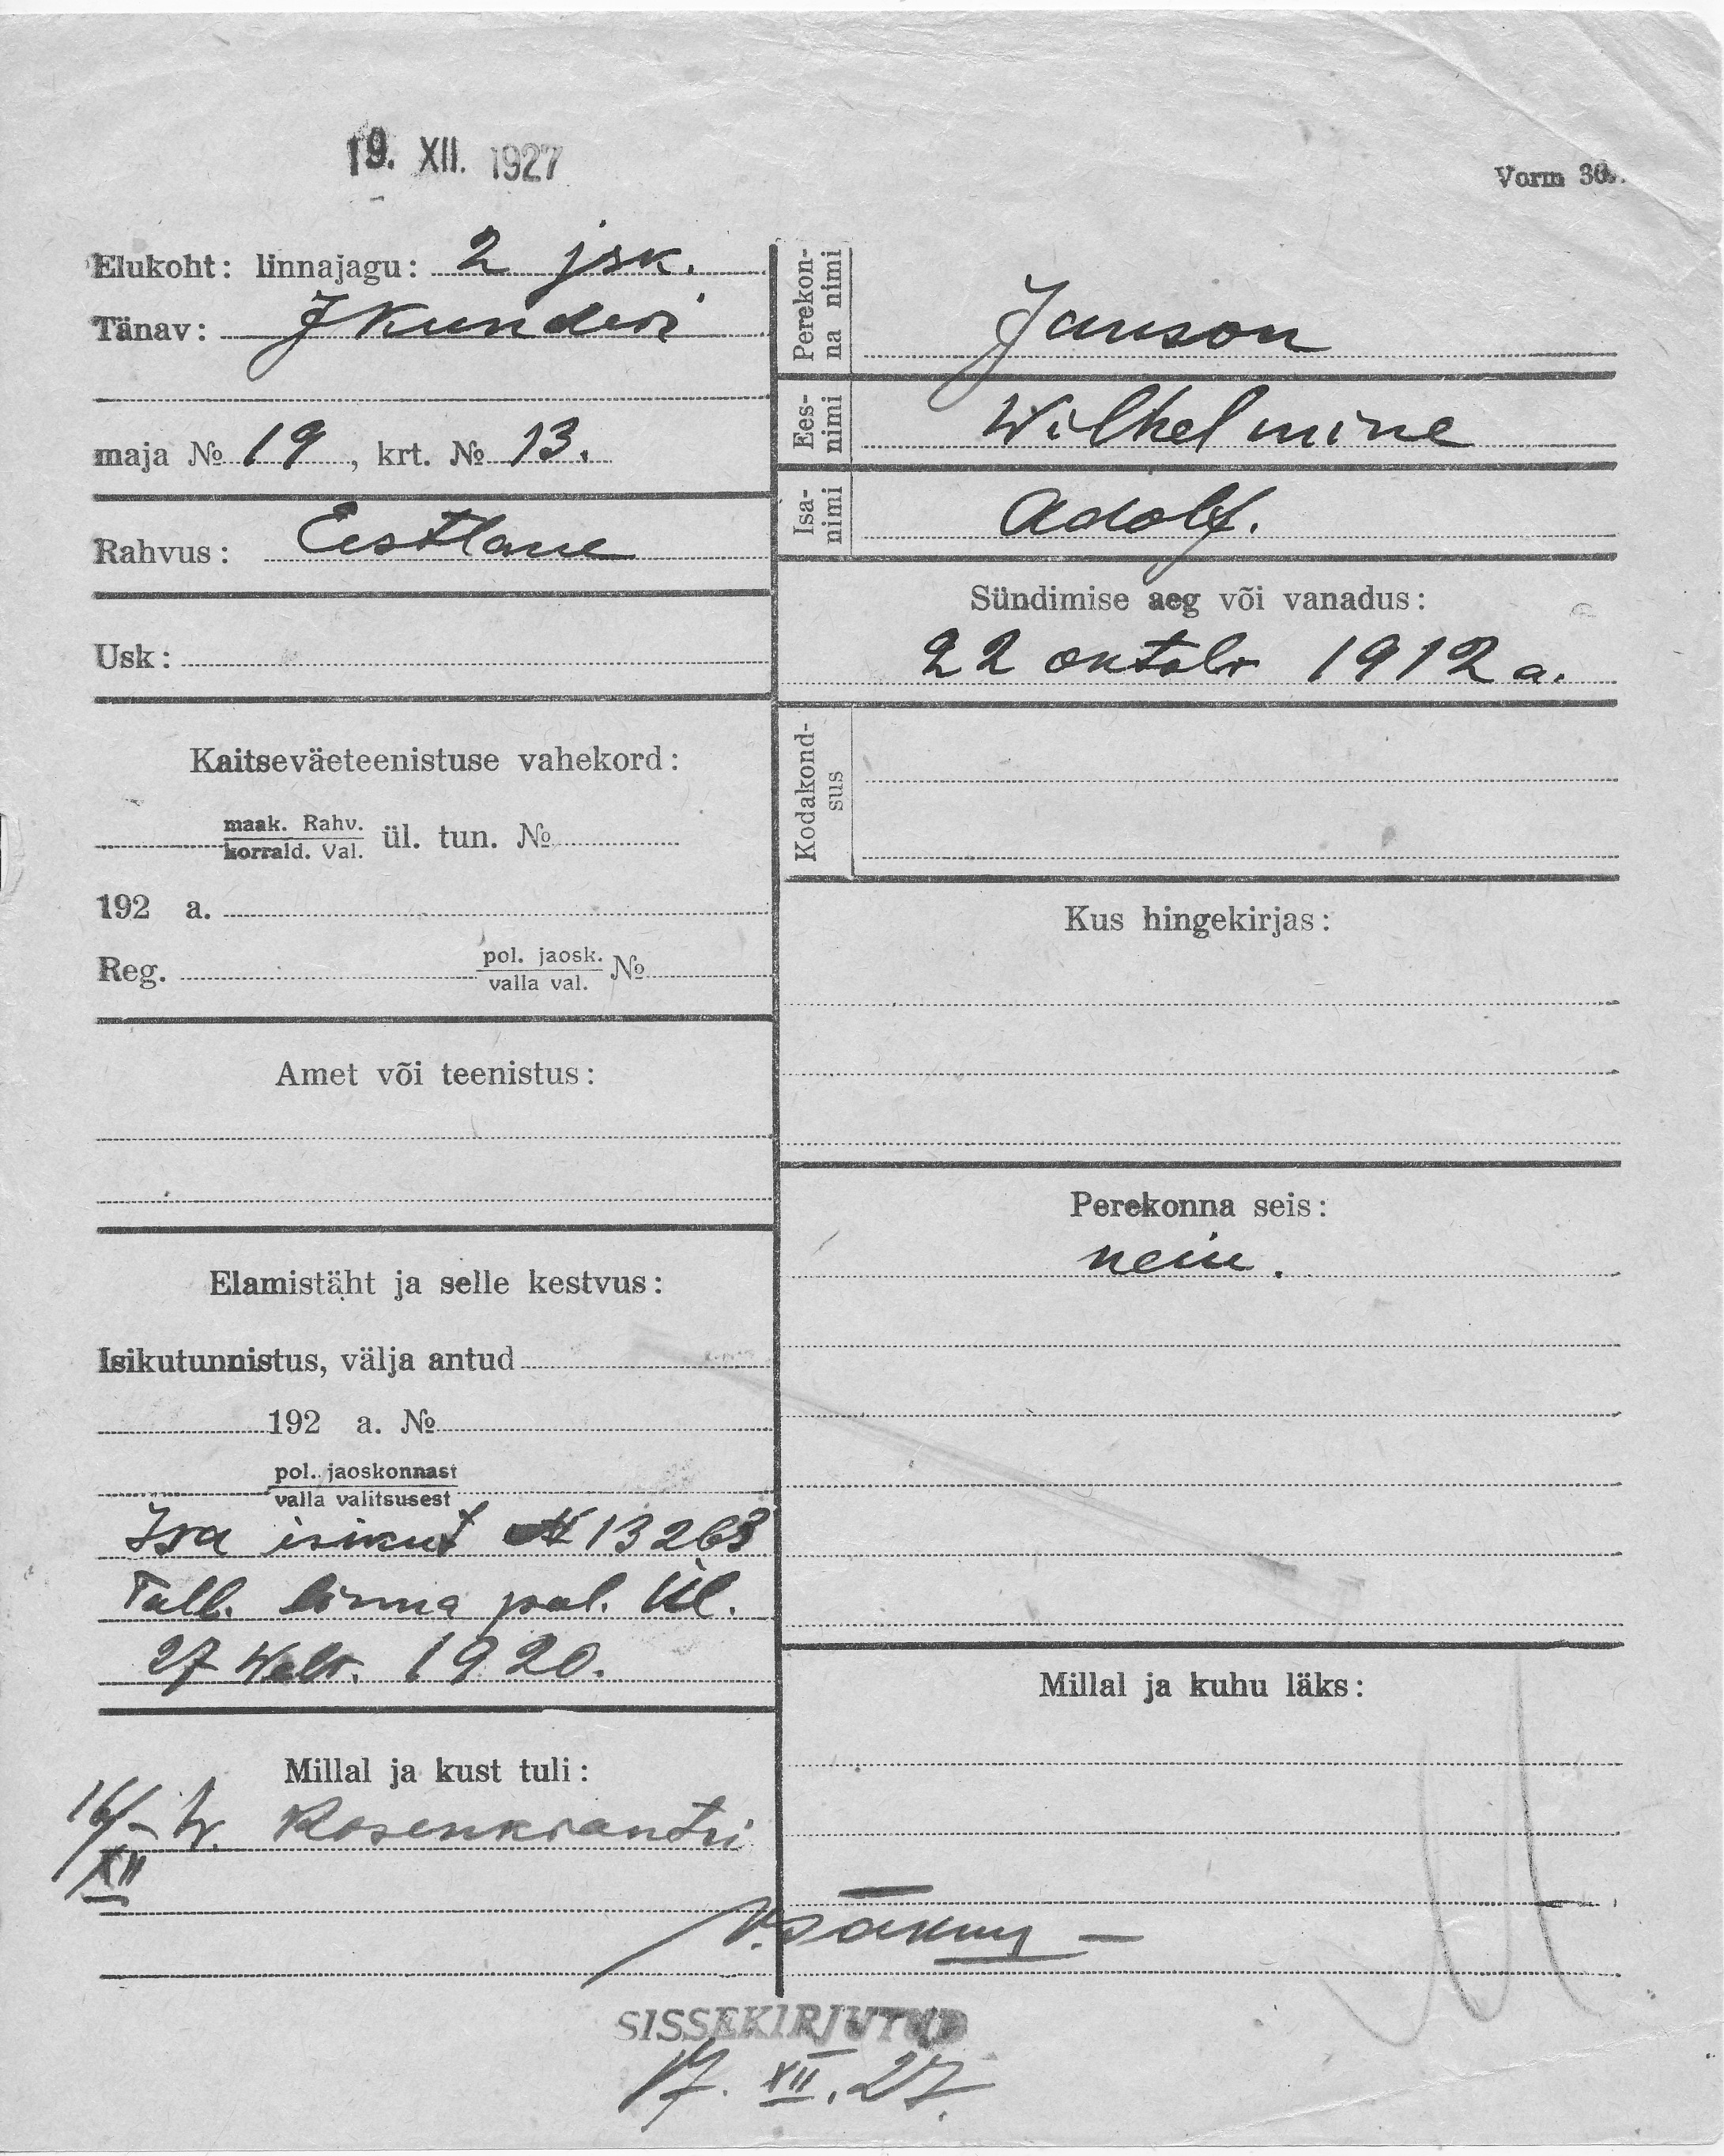 19. XII. 1927
Vorm 36.
Elukoht: linnajagu: 2 jsk.
Tänav: J Kunderi
maja № 19, krt. № 13.
Rahvus: Eestlane
Usk:
Kaitseväeteenistuse vahekord:
maak. Rahv.
korrald. Val. ül. tun. №
192 a.
Reg. pol. jaosk. №
valla val.
Amet või teenistus:
Elamistäht ja selle kestvus:
Isikutunnistus, välja antud
192 a. №
pol. jaoskonnast
valla valitsusest
Isa isikut № 13263
Tall. linna pol. Ül.
27 Webr. 1920.
Millal ja kust tuli:
16/XII - Rosenkrantsi
Perekon-
na nimi
Janson
Ees-
nimi
Wilhelmine
Isa-
nimi
Adolf.
Sündimise aeg või vanadus:
22 oktobr 1912 a.
Kodakond-
sus
Kus hingekirjas:
Perekonna seis:
neiu.
Millal ja kuhu läks:
SISSEKIRJUTUD
17. XII. 27.